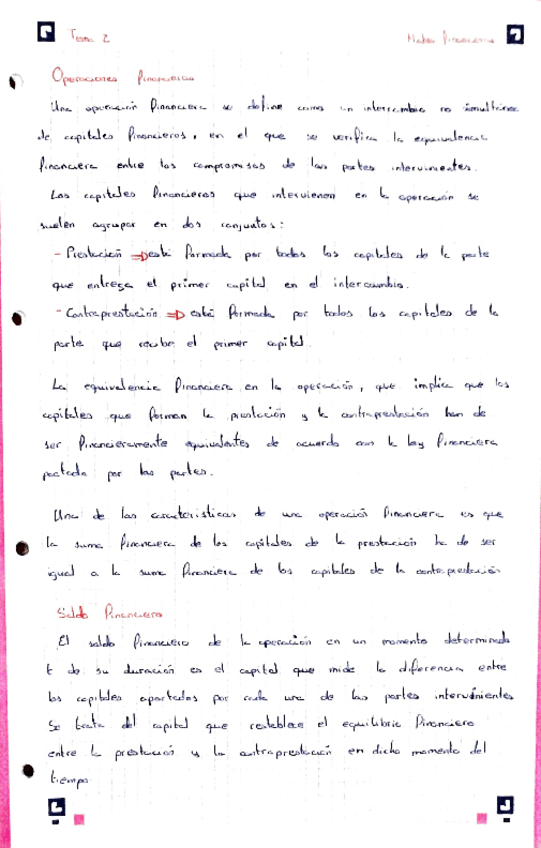 Tema 2
Mates Financieras
Operaciones Financieras
Una operación financiera se define como un intercambio no simultáneo
de capitales financieros, en el que se verifica la equivalencia
financiera entre los compromisos de las partes intervinientes.
Los capitales financieros que intervienen en la operación se
suelen agrupar en dos conjuntos:
- Prestación ⇒ está formada por todos los capitales de la parte
que entrega el primer capital en el intercambio.
- Contraprestación ⇒ está formada por todos los capitales de la
parte que recibe el primer capital.
La equivalencia financiera en la operación, que implica que los
capitales que forman la prestación y la contraprestación han de
ser financieramente equivalentes de acuerdo con la ley financiera
pactada por las partes.
Una de las características de una operación financiera es que
la suma financiera de los capitales de la prestación ha de ser
igual a la suma financiera de los capitales de la contraprestación
Saldo Financiero
El saldo financiero de la operación en un momento determinado
t de su duración es el capital que mide la diferencia entre
los capitales aportados por cada una de las partes intervinientes
Se trata del capital que restablece el equilibrio financiero
entre la prestación y la contraprestación en dicho momento del
tiempo